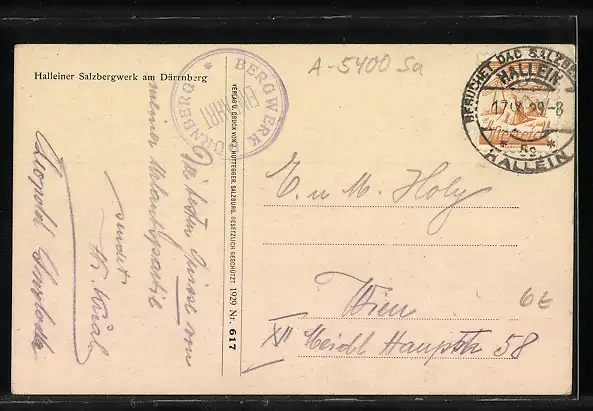 Halleiner Salzbergwerk am Dürrnberg
A-5400 Sa
BERGWERK DÜRNBERG
EINFAHRT
BESUCHET BAD SALZB
HALLEIN
17.IX.29-8
* 5a *
HALLEIN
Die besten Grüsse von
meiner Urlaubspartie
sendet
VERLAG U. DRUCK VON J. HUTTEGGER, SALZBURG. GESETZLICH GESCHÜTZT 1929 Nr. 617
E. u M. Holy
Wien
XII Meidl Hauptstr 58
6E